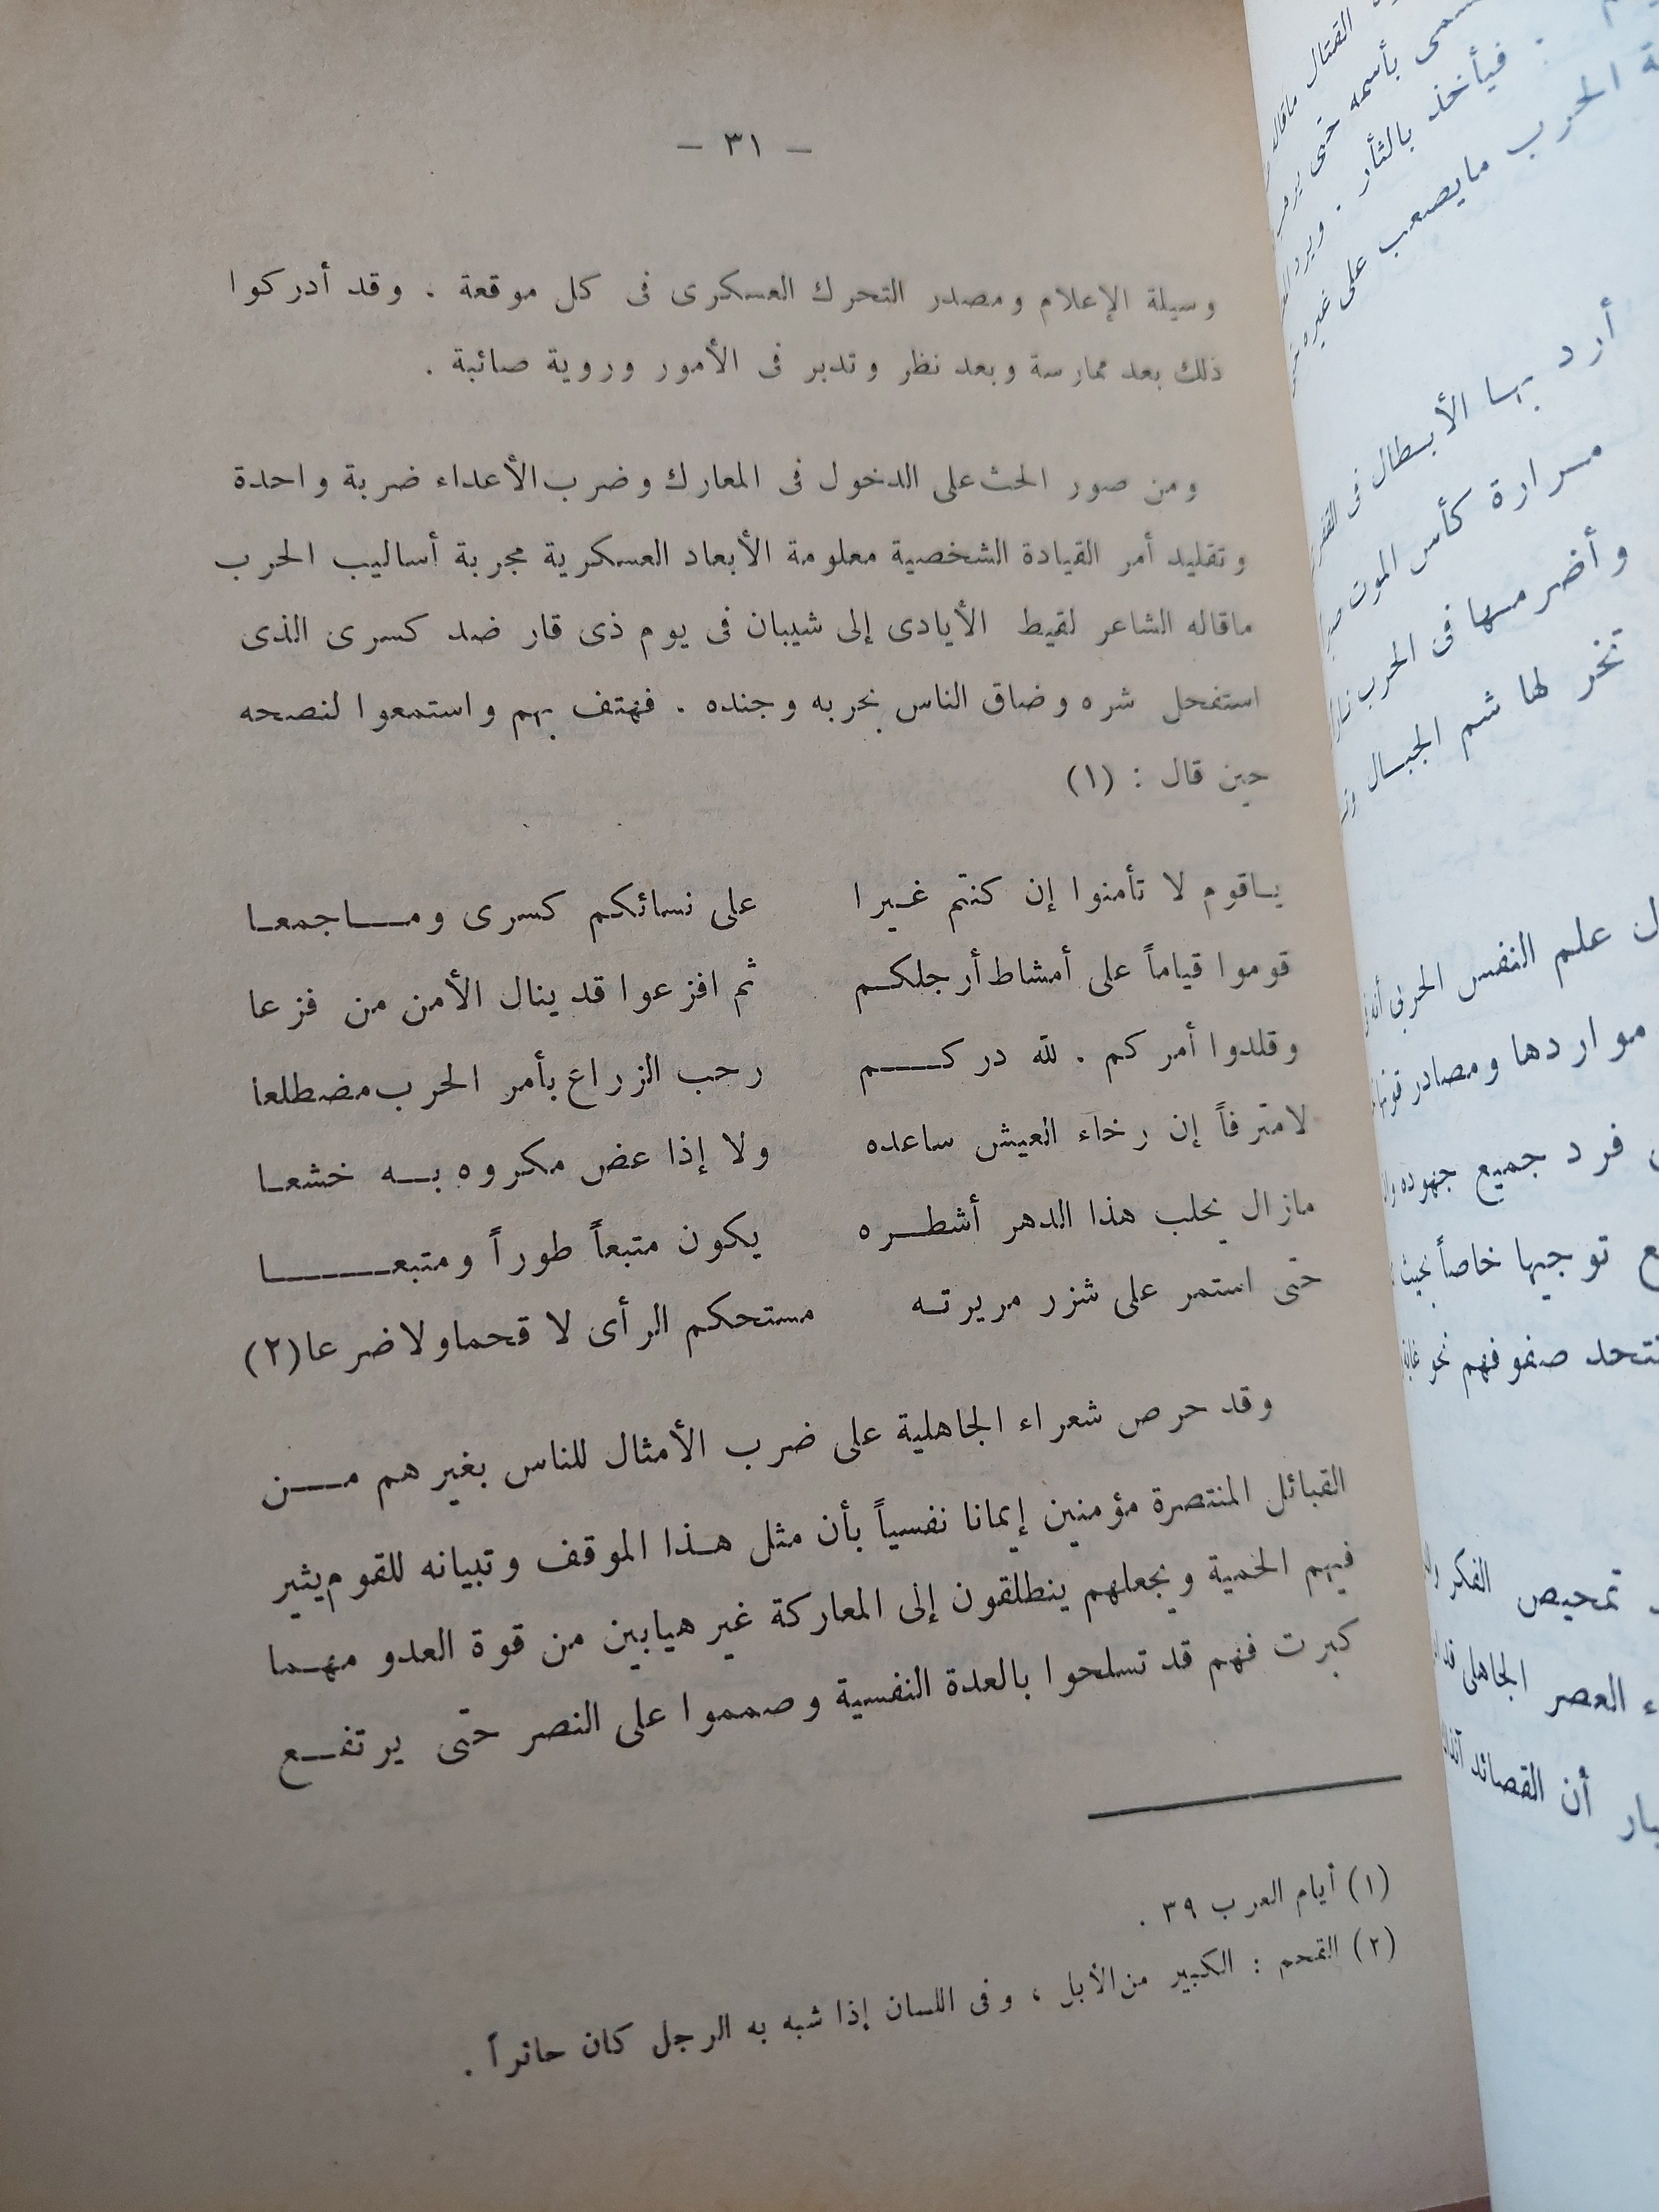 — ٣١ —
وسيلة الإعلام ومصدر التحرك العسكرى فى كل موقعة . وقد أدركوا
ذلك بعد ممارسة وبعد نظر وتدبر فى الأمور وروية صائبة .
ومن صور الحث على الدخول فى المعارك وضرب الأعداء ضربة واحدة
وتقليد أمر القيادة الشخصية معلومة الأبعاد العسكرية مجربة أساليب الحرب
ماقاله الشاعر لقيط الأيادى إلى شيبان فى يوم ذى قار ضد كسرى الذى
استفحل شره وضاق الناس بحربه وجنده . فهتف بهم واستمعوا لنصحه
حين قال : (١)
ياقوم لا تأمنوا إن كنتم غيرا على نسائكم كسرى وماجمعا
قوموا قياماً على أمشاط أرجلكم ثم افزعوا قد ينال الأمن من فزعا
وقلدوا أمركم . لله دركم رحب الزراع بأمر الحرب مضطلعا
لامترفاً إن رخاء العيش ساعده ولا إذا عض مكروه به خشعا
مازال يحلب هذا الدهر أشطره يكون متبعاً طوراً ومتبعا
حتى استمر على شزر مريرته مستحكم الرأى لا قحما ولا ضرعا (٢)
وقد حرص شعراء الجاهلية على ضرب الأمثال للناس بغيرهم من
القبائل المنتصرة مؤمنين إيمانا نفسياً بأن مثل هذا الموقف وتبيانه للقوم يثير
فيهم الحمية ويجعلهم ينطلقون إلى المعاركة غير هيابين من قوة العدو مهما
كبرت فهم قد تسلحوا بالعدة النفسية وصمموا على النصر حتى يرتفع
(١) أيام العرب ٣٩ .
(٢) القحم : الكبير من الأبل ، وفى اللسان إذا شبه به الرجل كان حائراً .
القتال ماقاله
بأسمه حتى
فيأخذ بالثأر . ويرد
الحرب مايصعب على غيره
أرد بها الأبطال فى
مرارة كأس الموت
وأضرمها فى الحرب نارا
تخر لها شم الجبال
علم النفس الحربى
مواردها ومصادر
فرد جميع جهوده
توجيها خاصاً بحيث
صفوفهم نحو غاية
تمحيص الفكر
العصر الجاهلى
أن القصائد